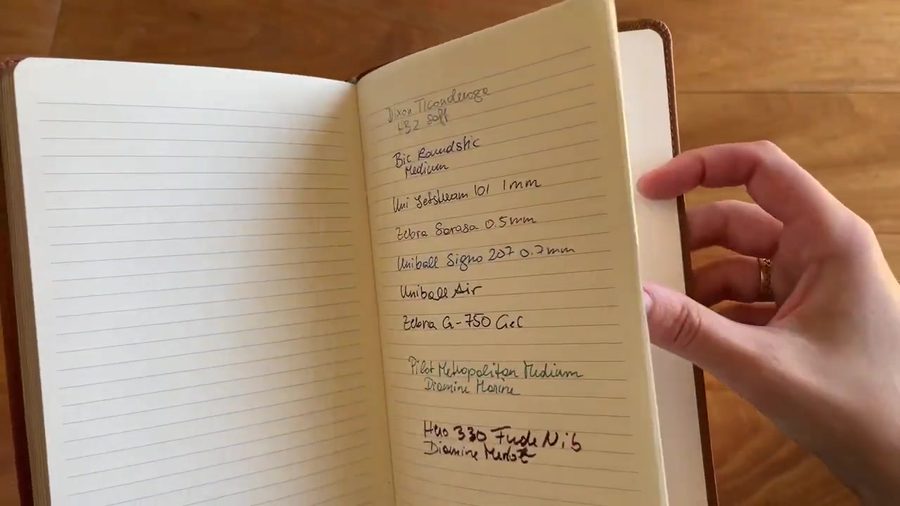 Dixon Ticonderoga
HB2 Soft
Bic Roundstic
Medium
Uni Jetstream 101 1mm
Zebra Sarasa 0.5mm
Uniball Signo 207 0.7mm
Uniball Air
Zebra G-750 Gel
Pilot Metropolitan Medium
Diamine Marine
Hero 330 Fude Nib
Diamine Merlot